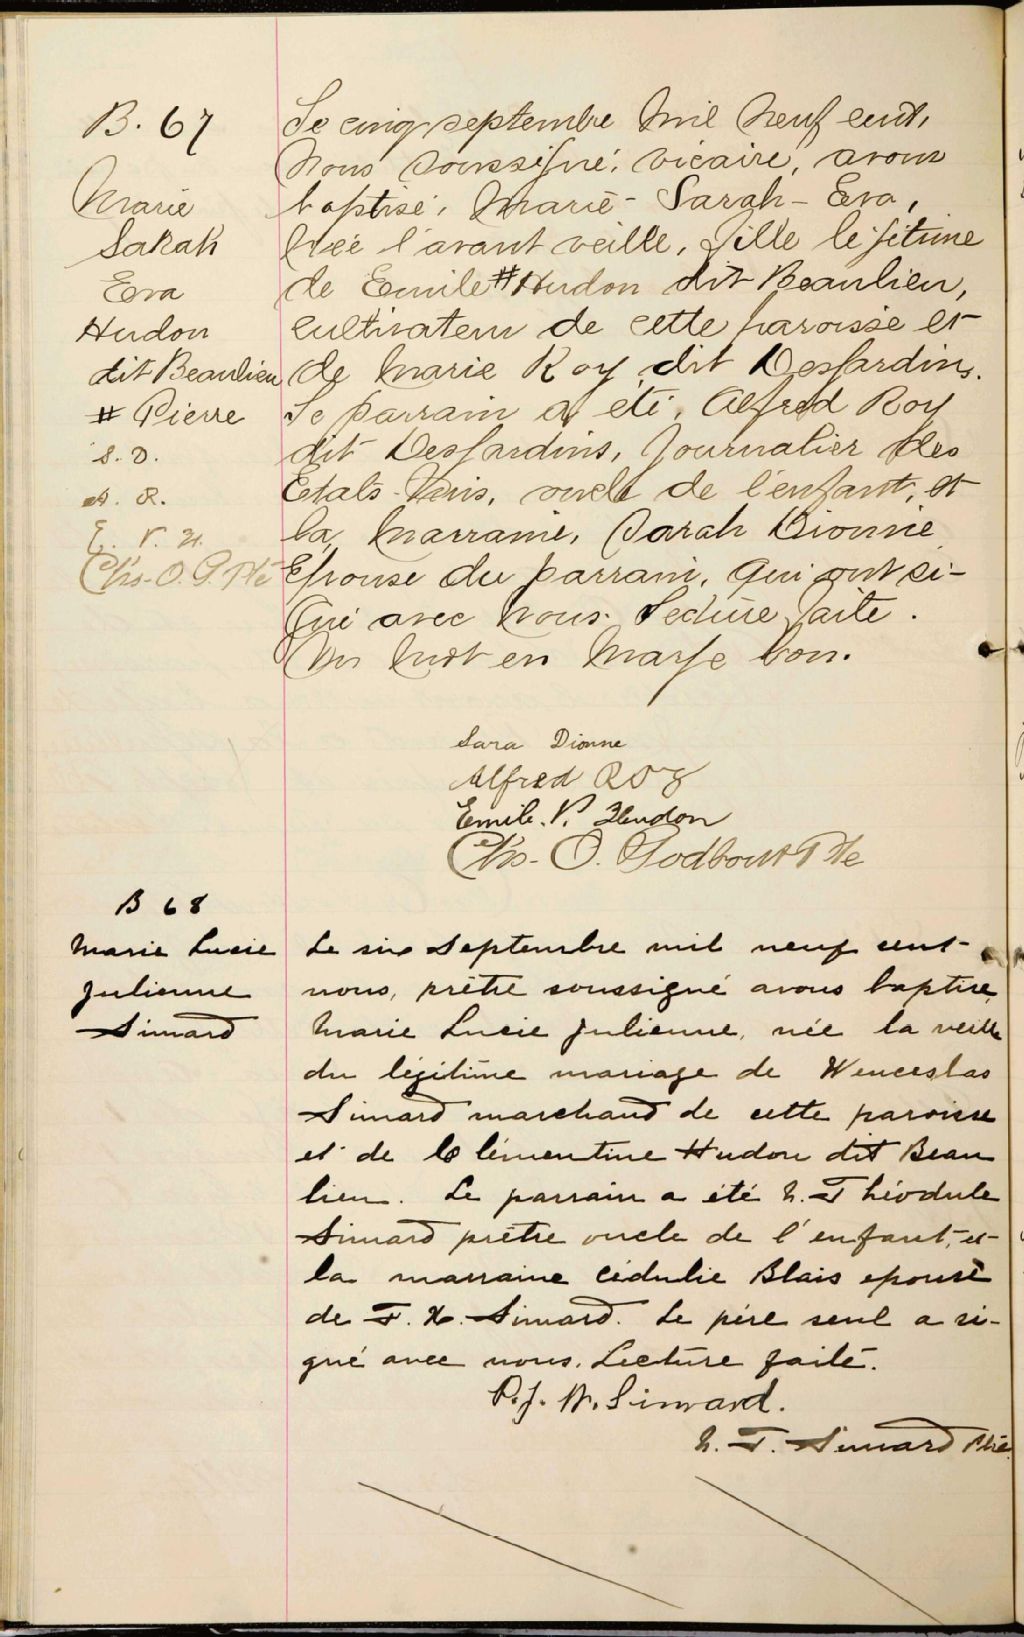 B. 67
Marie
Sarah
Eva
Hudon
dit Beaulieu
# Pierre
S. D.
A. R.
E. P. H.
Chs. O. G. Ptre
Le cinq septembre mil neuf cent,
nous soussigné, vicaire, avons
baptisé, Marie - Sarah - Eva,
née l'avant veille, fille légitime
de Emile # Hudon dit Beaulieu,
cultivateur de cette paroisse et
de Marie Roy dit Desjardins.
Le parrain a été, Alfred Roy
dit Desjardins, journalier des
Etats-Unis, oncle de l'enfant, et
la marraine, Sarah Dionne
Epouse du parrain, qui ont si-
gné avec nous. Lecture faite.
Un mot en marge bon.
Sara Dionne
Alfred Roy
Emile. P. Hudon
Chs. O. Godbout Ptre
B 68
Marie Lucie
Julienne
Simard
Le six Septembre mil neuf cent
nous, prêtre soussigné avons baptisé
Marie Lucie Julienne, née la veille
du légitime mariage de Wenceslas
Simard marchand de cette paroisse
et de Clémentine Hudon dit Beau
lieu. Le parrain a été N. Théodule
Simard prêtre oncle de l'enfant, et
la marraine Cédulie Blais epouse
de F. X. Simard. Le père seul a si-
gné avec nous. Lecture faite.
P. J. W. Simard.
N. T. Simard Ptre